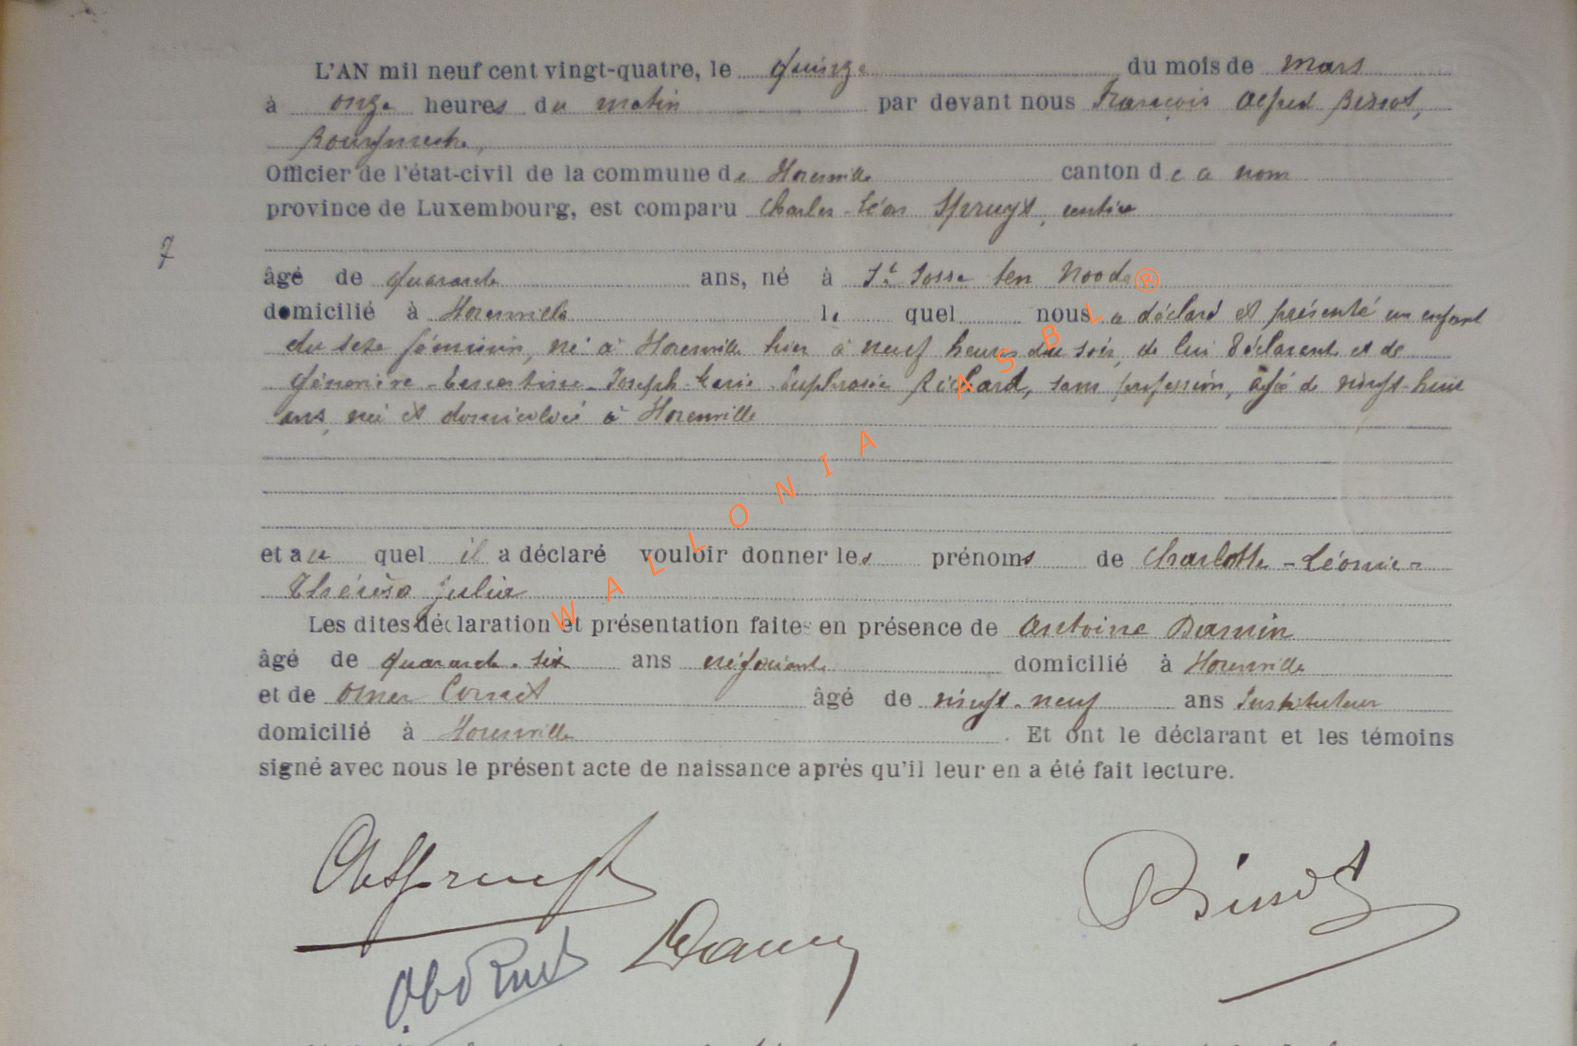 L'AN mil neuf cent vingt-quatre, le quinze du mois de mars
à onze heures du matin par devant nous François Alfred Bissot,
Bourgmestre,
Officier de l'état-civil de la commune de Horenville canton de a nom
province de Luxembourg, est comparu Charles-Léon Spruyt, rentier
7
âgé de quarante ans, né à St Josse ten Noode
domicilié à Horenville le quel nous a déclaré et présenté un enfant
du sexe féminin, né à Horenville hier à neuf heures du soir, de lui déclarant et de
Ernestine-Joseph-Marie Euphrasie Richard, sans profession, âgée de vingt-huit
ans, née et domiciliée à Horenville
et au quel il a déclaré vouloir donner les prénoms de Charlotte-Léonie-
Thérèse Julia
Les dites déclaration et présentation faites en présence de Antoine Damin
âgé de quarante-six ans négociant domicilié à Horenville
et de Omer âgé de vingt-neuf ans Instituteur
domicilié à Horenville . Et ont le déclarant et les témoins
signé avec nous le présent acte de naissance après qu'il leur en a été fait lecture.
WALLONIA ASBL ®
Bissot